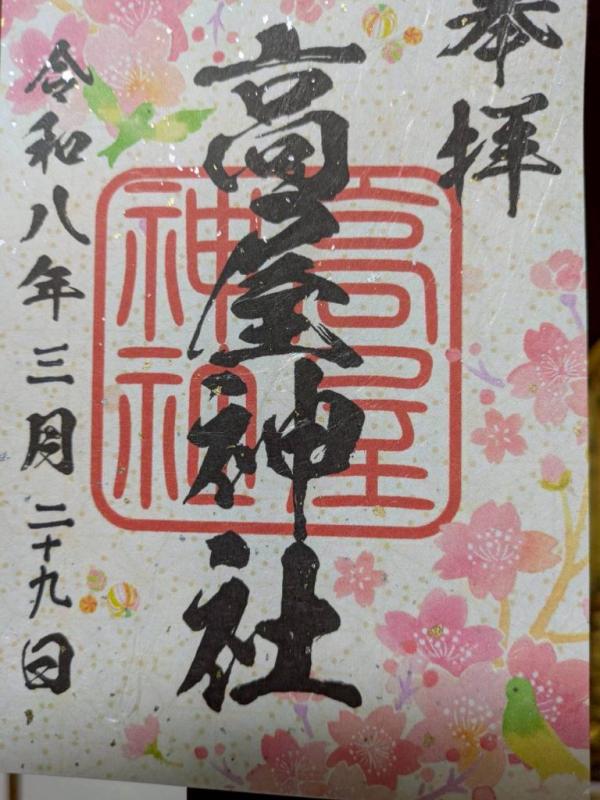 奉拝
高屋神社
高屋神社
令和八年三月二十九日